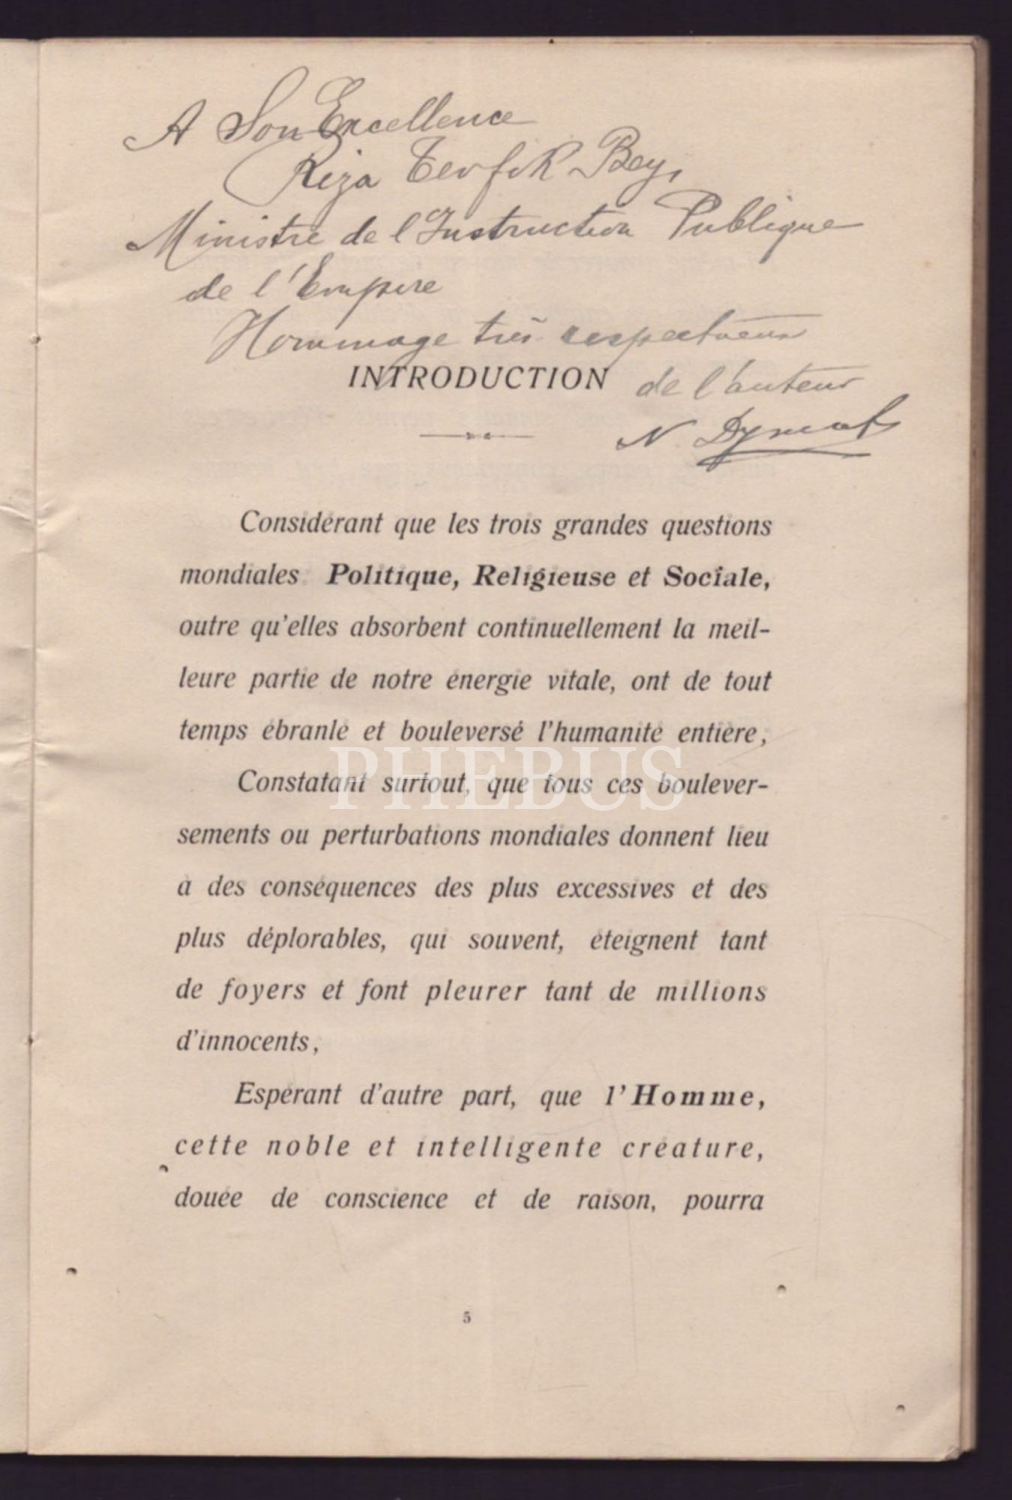 A Son Excellence
Riza Tevfik Bey,
Ministre de l'Instruction Publique
de l'Empire
Hommage très respectueux
de l'auteur
N.
INTRODUCTION
Considérant que les trois grandes questions
mondiales Politique, Religieuse et Sociale,
outre qu'elles absorbent continuellement la meil-
leure partie de notre énergie vitale, ont de tout
temps ébranlé et bouleversé l'humanité entière,
PHEBUS
Constatant surtout, que tous ces boulever-
sements ou perturbations mondiales donnent lieu
à des conséquences des plus excessives et des
plus déplorables, qui souvent, éteignent tant
de foyers et font pleurer tant de millions
d'innocents,
Espérant d'autre part, que l'Homme,
cette noble et intelligente créature,
douée de conscience et de raison, pourra
5